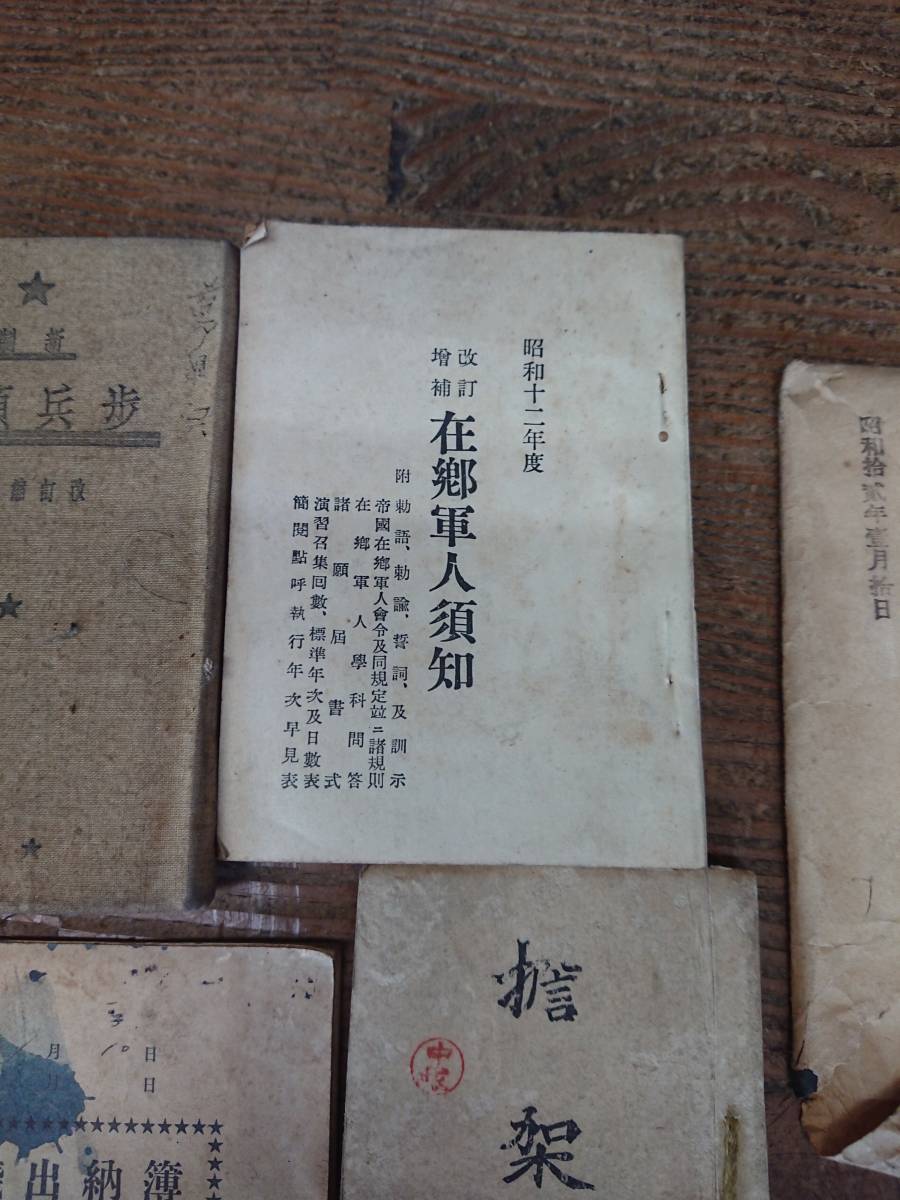 昭和十二年度
改訂
増補
在鄉軍人須知
附 勅語、勅諭、誓詞、及訓示
帝國在鄉軍人會令及同規定竝ニ諸規則
在鄉軍人學科問答
諸願屆書式
演習召集回數、標準年次及日數表
簡閱點呼執行年次早見表
步兵
改訂
昭和拾貳年壹月拾日
擔
架
月 日
月 日
出納簿